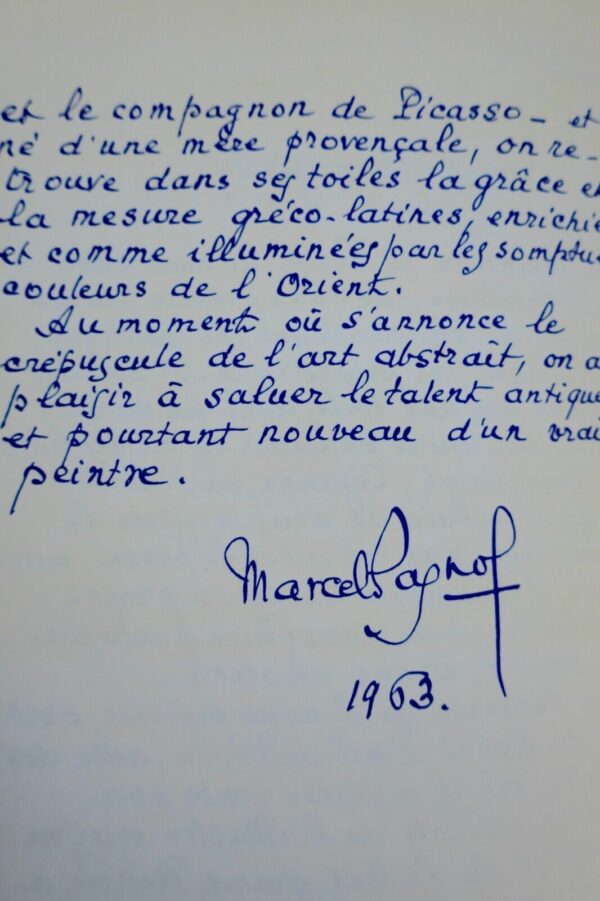 et le compagnon de Picasso - et
né d'une mère provençale, on re-
trouve dans ses toiles la grâce et
la mesure gréco-latines, enrichie
et comme illuminées par les somptu
couleurs de l'Orient.
Au moment où s'annonce le
crépuscule de l'art abstrait, on a
plaisir à saluer le talent antique
et pourtant nouveau d'un vrai
peintre.
Marcel Pagnol
1963.